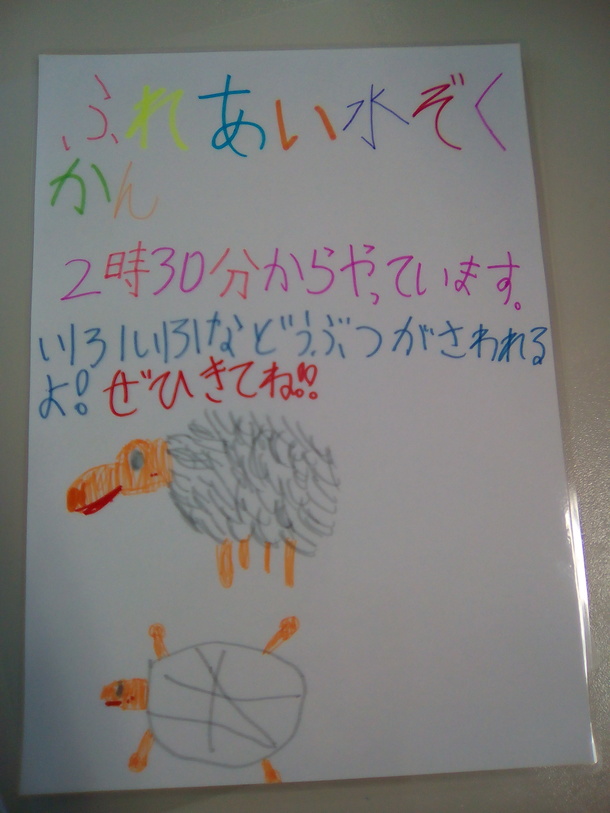 ふれあい水ぞく
かん
2時30分からやっています。
いろいろなどうぶつがさわれる
よ!ぜひきてね!!